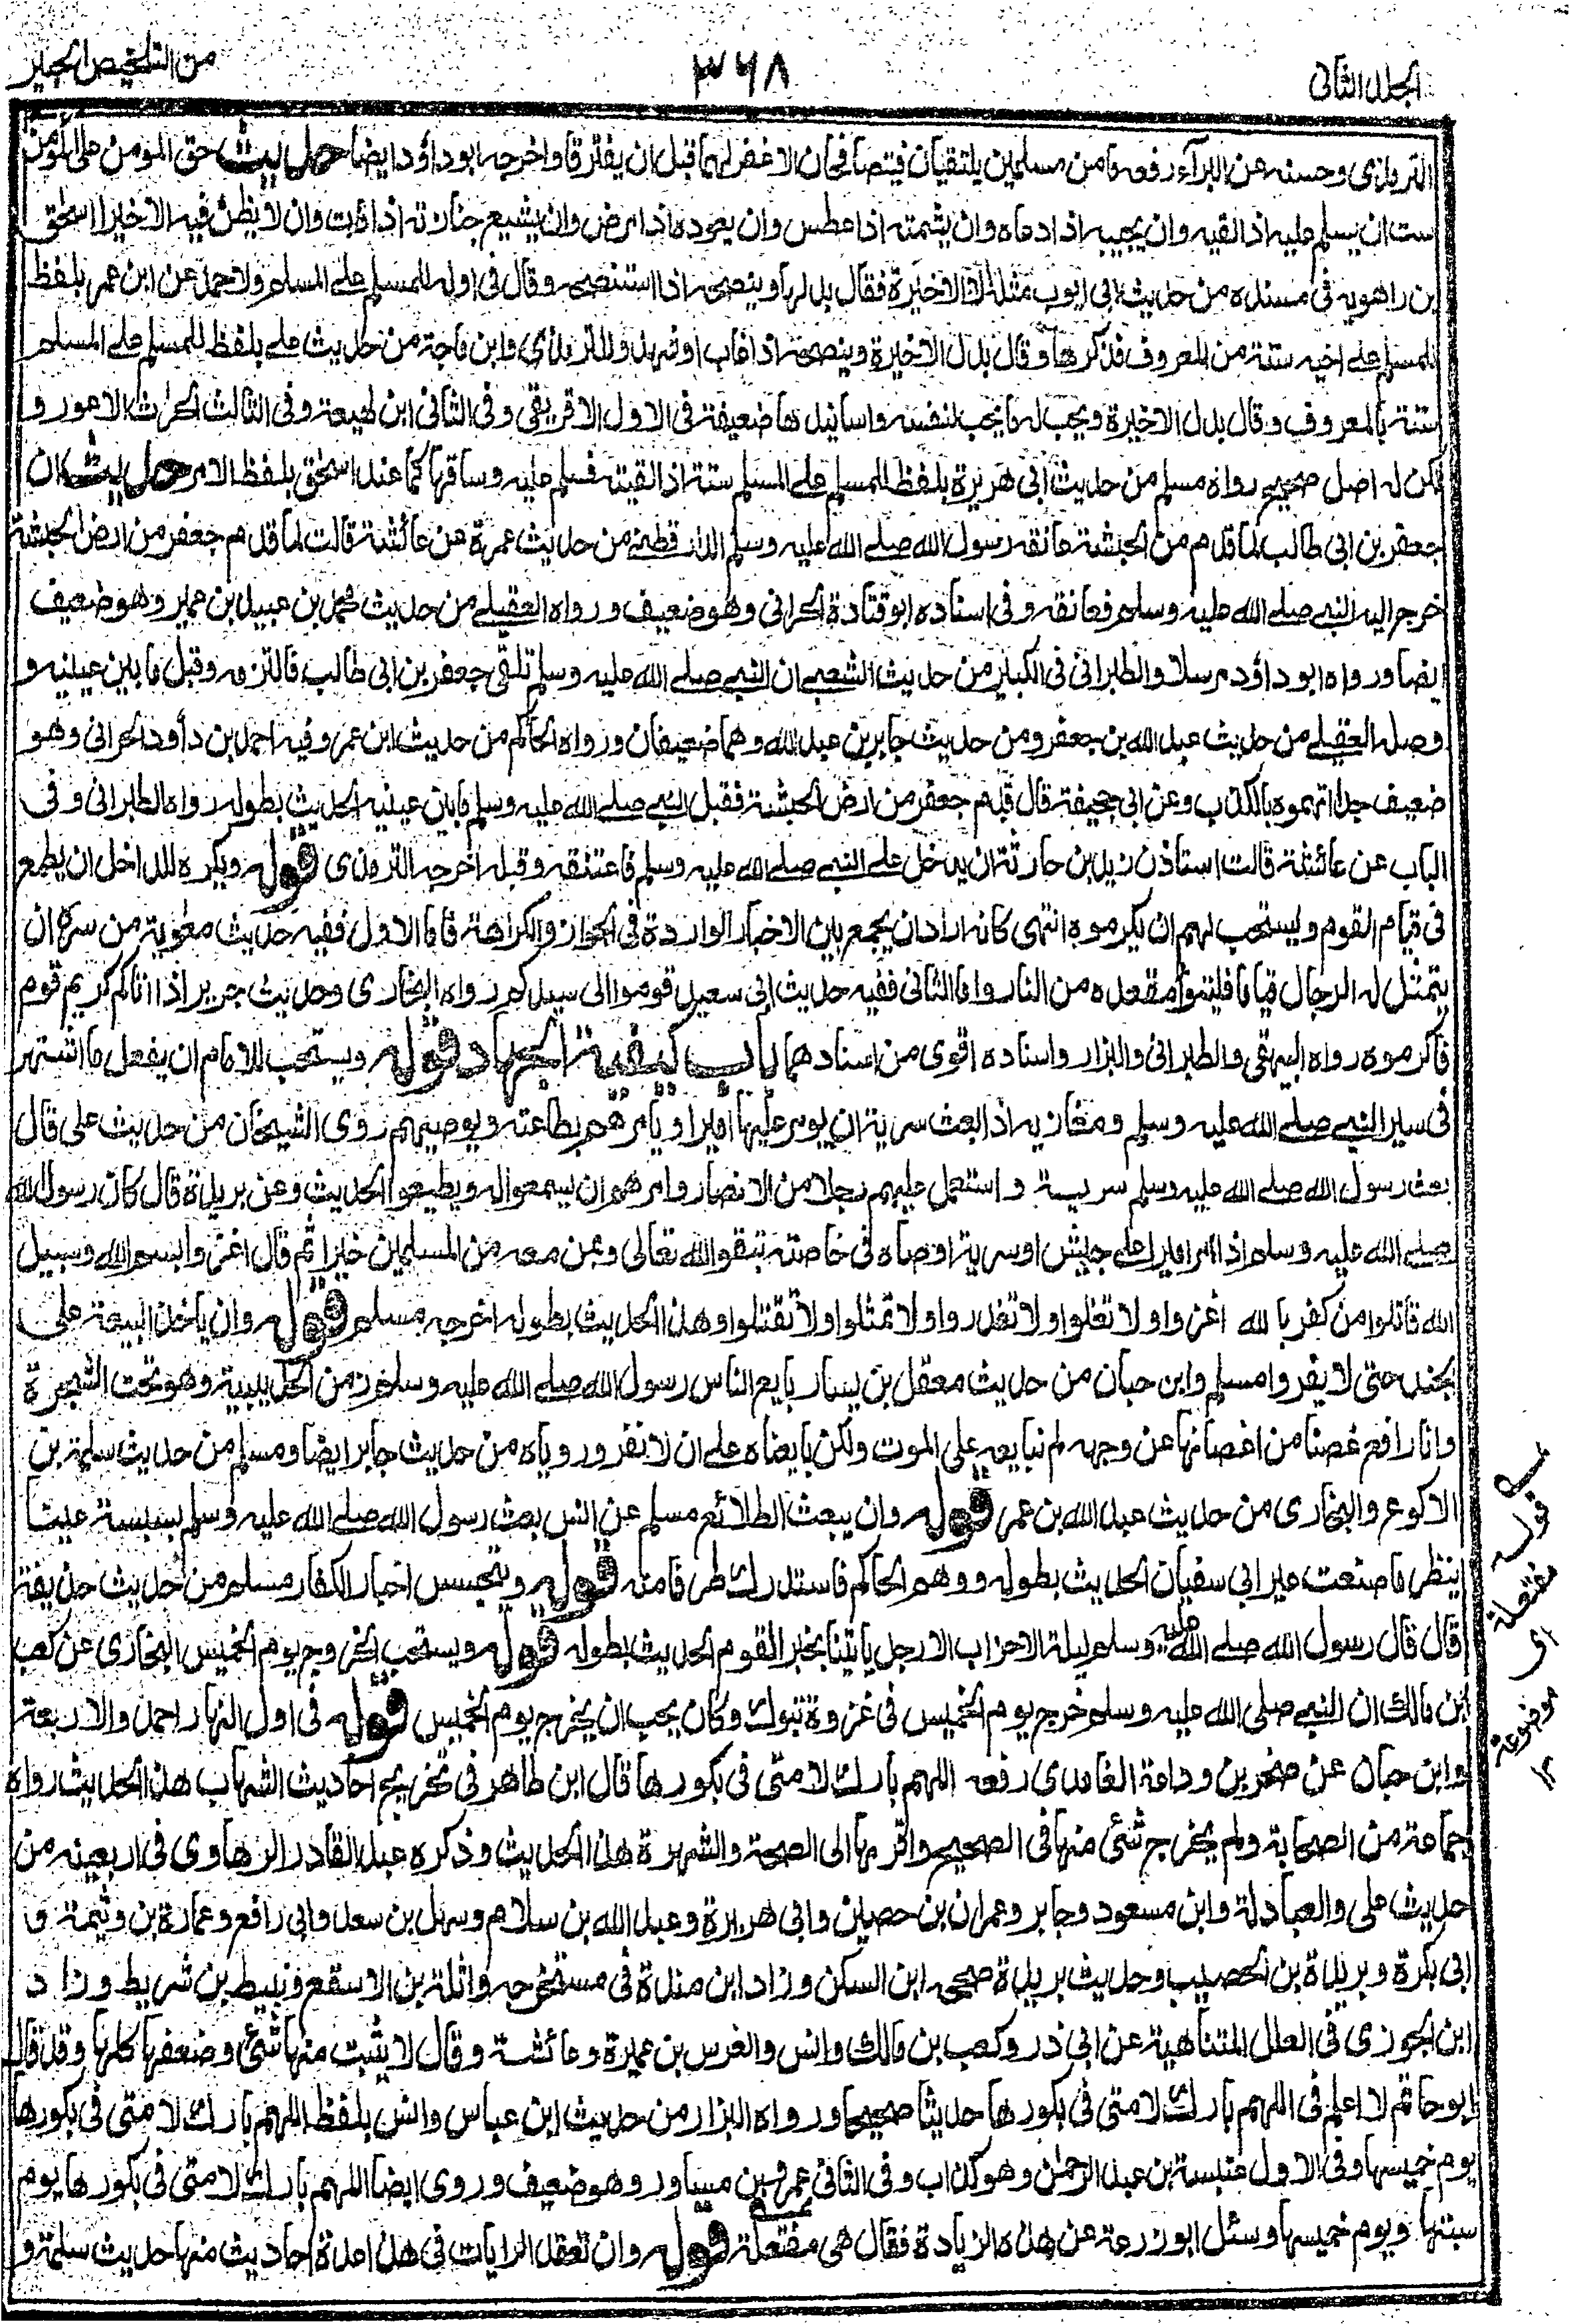 الجلد الثانی
۳۶۸
من التلخیص الحبیر
الترمذی وحسنه عن البرآء رفعه ما من مسلمین یلتقیان فیتصافحان الا غفر لهما قبل ان یفترقا واخرجه ابو داؤد ایضا حدیث حق المؤمن علی المؤمن
ست ان یسلم علیه اذا لقیه وان یجیبه اذا دعاه وان یشمته اذا عطس وان یعوده اذا مرض وان یشیع جنازته اذا مات وان لا یظن فیه الا خیرا اسحٰق
بن راهویه فی مسنده من حدیث ابی ایوب مثله الا الاخیرة فقال بدلها وینصحه اذا استنصحه وقال فی اوله للمسلم علے المسلم ولاحمد عن ابن عمر بلفظ
للمسلم علے اخیه ستة من المعروف فذکرها وقال بدل الاخیرة وینصحه اذا غاب او شهد وللترمذی وابن ماجة من حدیث علے بلفظ للمسلم علے المسلم
ستة بالمعروف وقال بدل الاخیرة ویحب له ما یحب لنفسه واسانیدها ضعیفة فی الاول الافریقی وفی الثانی ابن لهیعة وفی الثالث الحارث الاعور و
لکن له اصل صحیح رواه مسلم من حدیث ابی هریرة بلفظ للمسلم علے المسلم ستة اذا لقیته فسلم علیه وساقها کما عند اسحٰق بلفظ الامر حدیث ان
جعفر بن ابی طالب لما قدم من الحبشة عانقه رسول الله صلے الله علیه وسلم الدارقطنے من حدیث عمرة عن عائشة قالت لما قدم جعفر من ارض الحبشة
خرج الیه النبے صلے الله علیه وسلم فعانقه وفی اسناده ابو قتادة الحرانی وهو ضعیف ورواه العقیلے من حدیث محمد بن عبید بن عمیر وهو ضعیف
ایضا ورواه ابو داؤد مرسلا والطبرانی فی الکبیر من حدیث الشعبے ان النبے صلے الله علیه وسلم تلقی جعفر بن ابی طالب فالتزمه وقبل ما بین عینیه و
وصله العقیلے من حدیث عبد الله بن جعفر ومن حدیث جابر بن عبد الله وهما ضعیفان ورواه الحاکم من حدیث ابن عمر وفیه احمد بن داؤد الحرانی وهو
ضعیف جدا اتهموه بالکذب وعن ابی جحیفة قال قدم جعفر من ارض الحبشة فقبل النبے صلے الله علیه وسلم ما بین عینیه الحدیث بطوله رواه الطبرانی وفی
الباب عن عائشة قالت استاذن زید بن حارثة ان یدخل علے النبے صلے الله علیه وسلم فاعتنقه وقبله اخرجه الترمذی قوله ویکره للداخل ان یطمع
فی قیام القوم ویستحب لهم ان یکرموه انتهی کانه اراد ان یجمع بین الاخبار الواردة فی الجواز والکراهة فاما الاول ففیه حدیث معٰویة من سره ان
یتمثل له الرجال قیاما فلیتبوأ مقعده من النار واما الثانی ففیه حدیث ابی سعید قوموا الی سیدکم رواه البخاری وحدیث جریر اذا اتاکم کریم قوم
فاکرموه رواه البیهقی والطبرانی والبزار واسناده اقوی من اسنادهما باب کیفیة الجهاد قوله ویستحب للامام ان یفعل ما اشتهر
فی سیر النبے صلے الله علیه وسلم ومغازیه اذا بعث سریة ان یومر علیها امیرا ویامرهم بطاعته ویوصیهم روی الشیخان من حدیث علی قال
بعث رسول الله صلے الله علیه وسلم سریة واستعمل علیهم رجلا من الانصار وامرهم ان یسمعوا له ویطیعوا الحدیث وعن بریدة قال کان رسول الله
صلے الله علیه وسلم اذا امر امیرا علے جیش او سریة اوصاه فی خاصته بتقوا الله تعالی وبمن معه من المسلمین خیرا ثم قال اغزوا بسم الله وسبیل
الله قاتلوا من کفر بالله اغزوا ولا تغلوا ولا تغدروا ولا تمثلوا ولا تقتلوا وهذا الحدیث بطوله اخرجه مسلم قوله وان یاخذ البیعة علی
الجند حتی لا یفروا مسلم وابن حبان من حدیث معقل بن یسار بایع الناس رسول الله صلے الله علیه وسلم زمن الحدیبیة وهو تحت الشجرة
وانا رافع غصنا من اغصانها عن وجهه لم نبایعه علی الموت ولکن بایعناه علے ان لا نفر ورویاه من حدیث جابر ایضا ومسلم من حدیث سلمة بن
الاکوع والبخاری من حدیث عبد الله بن عمر قوله وان یبعث الطلائع مسلم عن انس بعث رسول الله صلے الله علیه وسلم بسبسة عینا
ینظر ما صنعت عیر ابی سفیان الحدیث بطوله ووهم الحاکم فاستدرك طرفا منه قوله ویتجسس اخبار الکفار مسلم من حدیث حذیفة
قال قال رسول الله صلے الله علیه وسلم لیلة الاحزاب الا رجل یاتینا بخبر القوم الحدیث بطوله قوله ویستحب الخروج یوم الخمیس البخاری عن کعب
ابن مالك ان النبے صلی الله علیه وسلم خرج یوم الخمیس فی غزوة تبوك وکان یحب ان یخرج یوم الخمیس قوله فی اول النهار احمد والاربعة
وابن حبان عن صخر بن وداعة الغامدی رفعه اللهم بارك لامتی فی بکورها قال ابن طاهر فی تخریج احادیث الشهاب هذا الحدیث رواه
جماعة من الصحابة ولم یخرج شئ منها فی الصحیح واقربها الی الصحة والشهرة هذا الحدیث وذکره عبد القادر الرهاوی فی اربعینه من
حدیث علی والعبادلة وابن مسعود وجابر وعمران بن حصین وابی هریرة وعبد الله بن سلام وسهل بن سعد وابی رافع وعمارة بن وثیمة و
ابی بکرة وبریدة بن الحصیب وحدیث بریدة صححه ابن السکن وزاد ابن مندة فی مستخرجه واثلة بن الاسقع ونبیط بن شریط وزاد
ابن الجوزی فی العلل المتناهیة عن ابی ذر وکعب بن مالك وانس والعرس بن عمیرة وعائشة وقال لا یثبت منها شئ وضعفها کلها وقد قال
ابو حاتم لا اعلم فی اللهم بارك لامتی فی بکورها حدیثا صحیحا ورواه البزار من حدیث ابن عباس وانس بلفظ اللهم بارك لامتی فی بکورها
یوم خمیسها وفی الاول عنبسة بن عبد الرحمٰن وهو کذاب وفی الثانی عمرو بن مساور وهو ضعیف وروی ایضا اللهم بارك لامتی فی بکورها یوم
سبتها ویوم خمیسها وسئل ابو زرعة عن هذه الزیادة فقال هی مفتعلة قوله وان تعقد الرایات فی هذا عدة احادیث منها حدیث سلمة و
قوله
مفتعلة
ای
موضوعة
۱۲